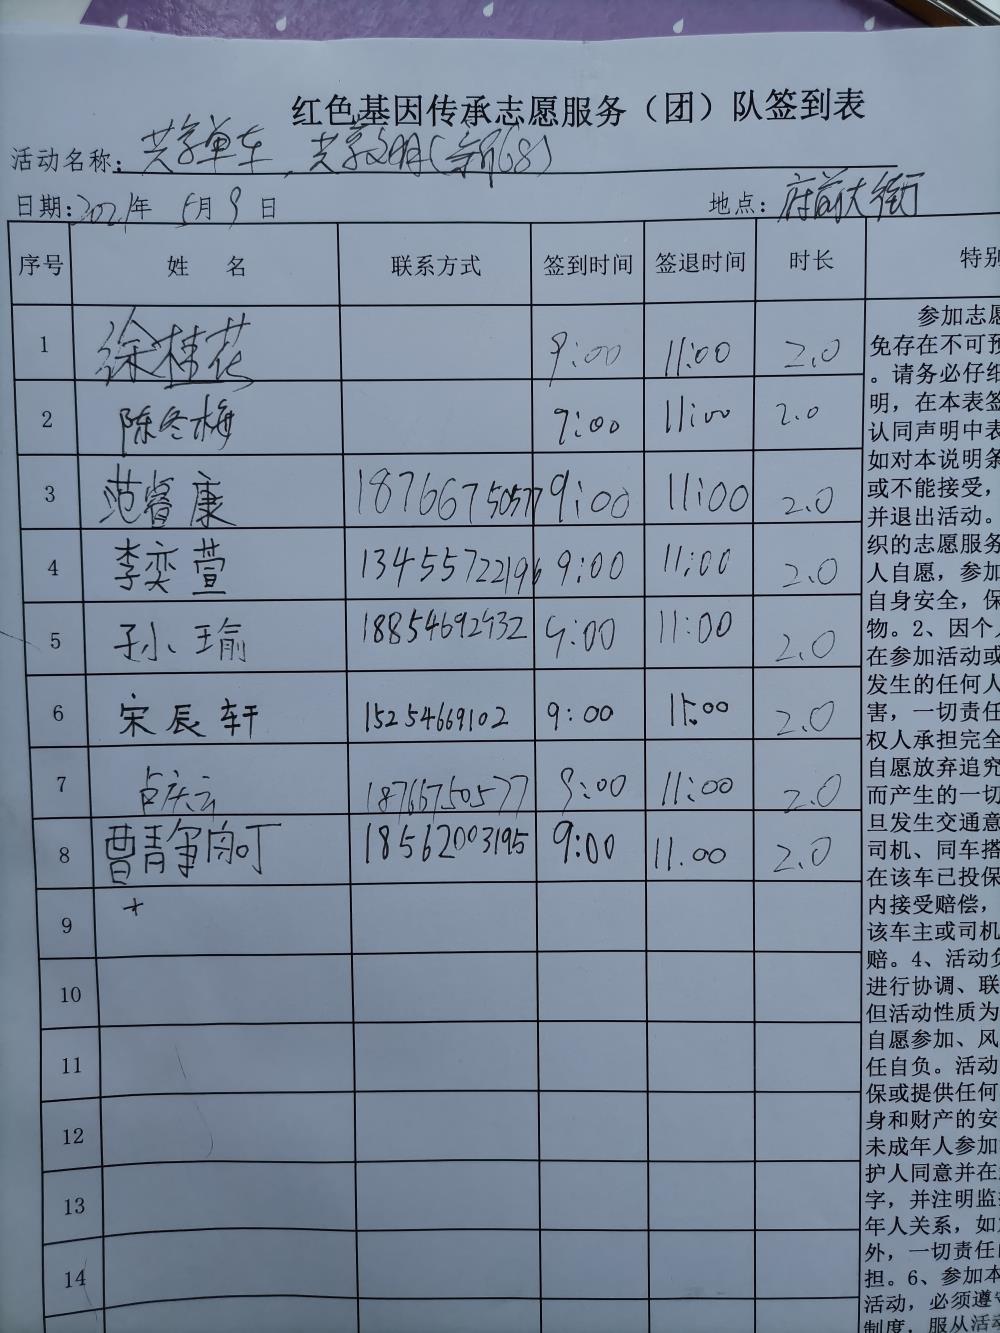 红色基因传承志愿服务（团）队签到表
活动名称：共享单车，共享文明（第68）
日期：2021年 5月 9 日 地点：府前大街
序号 姓 名 联系方式 签到时间 签退时间 时长 特别
1 徐桂花 9:00 11:00 2.0
2 陈冬梅 9:00 11:00 2.0
3 范睿康 18766750577 9:00 11:00 2.0
4 李奕萱 13455722196 9:00 11:00 2.0
5 孙小瑜 18854692932 9:00 11:00 2.0
6 宋辰轩 15254669102 9:00 11:00 2.0
7 卢庆云 18766750577 9:00 11:00 2.0
8 曹青 18562003195 9:00 11.00 2.0
9
10
11
12
13
14
参加志愿
免存在不可预
。请务必仔细
明，在本表签
认同声明中表
如对本说明条
或不能接受，
并退出活动。
织的志愿服务
人自愿，参加
自身安全，保
物。2、因个人
在参加活动或
发生的任何人
害，一切责任
权人承担完全
自愿放弃追究
而产生的一切
旦发生交通意
司机、同车搭
在该车已投保
内接受赔偿，
该车主或司机
赔。4、活动负
进行协调、联
但活动性质为
自愿参加、风
任自负。活动
保或提供任何
身和财产的安
未成年人参加
护人同意并在
字，并注明监
年人关系，如
外，一切责任
担。6、参加本
活动，必须遵守
制度，服从活动